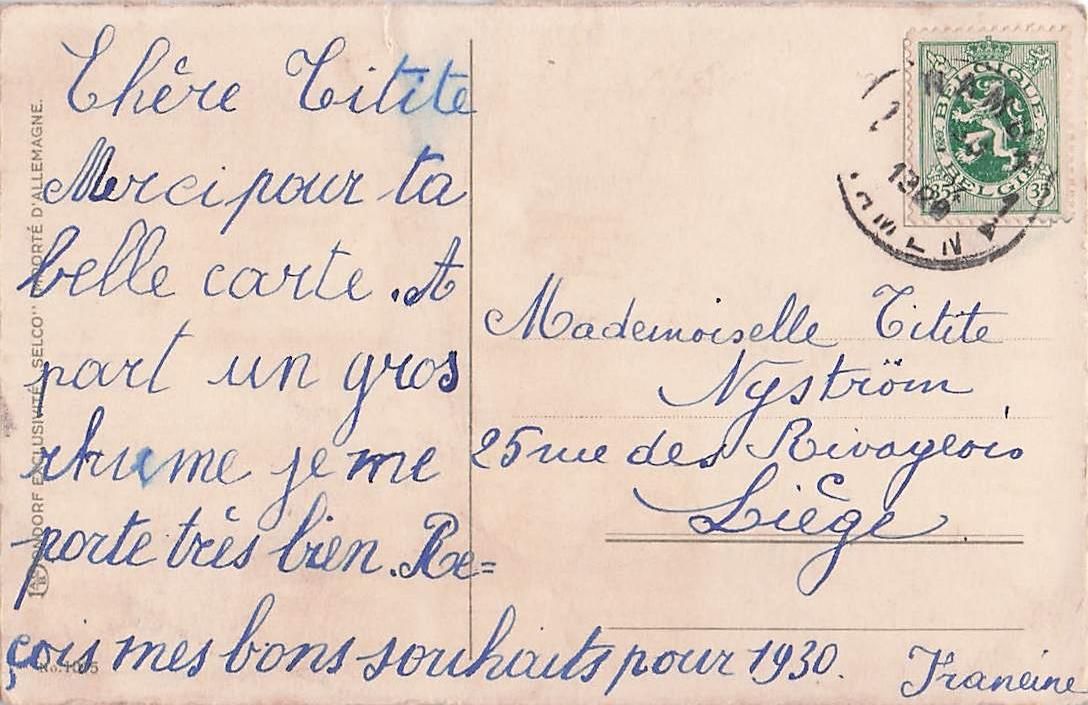 Chère Titite
Merci pour ta
belle carte. A
part un gros
rhume je me
porte très bien. Re=
çois mes bons souhaits pour 1930.
Francine
Mademoiselle Titite
Nyström
25 rue des Rivageois
Liège
BELGIQUE
BELGIE
35 35
EXCLUSIVITÉ „SELCO" IMPORTÉ D'ALLEMAGNE.